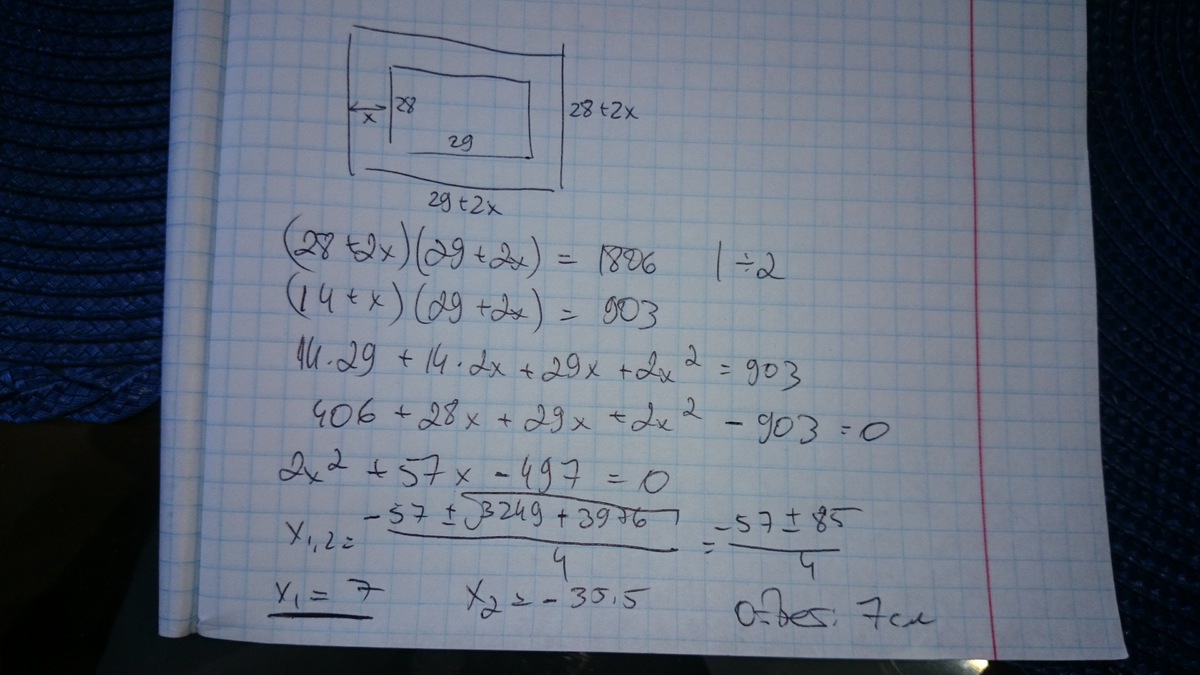 28
x
29
28+2x
29+2x
(28+2x)(29+2x) = 1806 | ÷2
(14+x)(29+2x) = 903
14·29 + 14·2x + 29x + 2x² = 903
406 + 28x + 29x + 2x² - 903 = 0
2x² + 57x - 497 = 0
x₁,₂ = (-57 ± √(3249 + 3976))/4 = (-57 ± 85)/4
x₁ = 7 x₂ = -35.5 Ответ: 7см